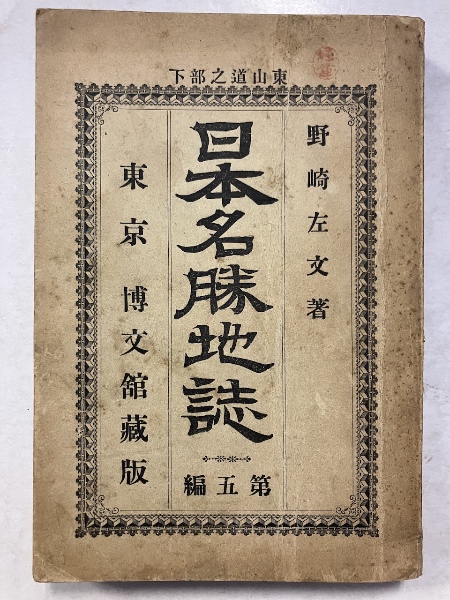 東山道之部下
野崎左文著
日本名勝地誌
第五編
東京 博文舘藏版